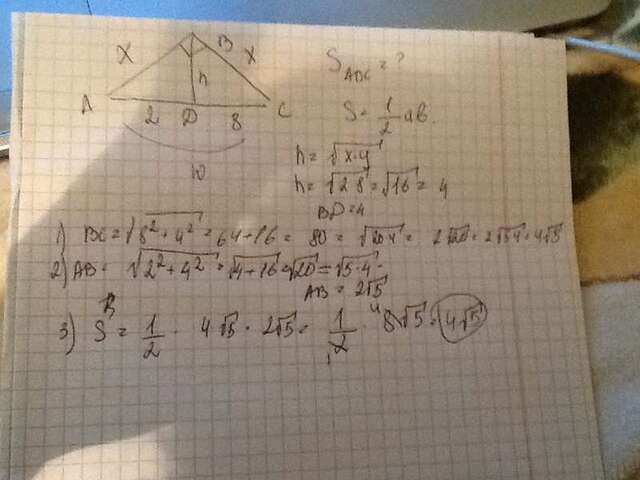 X B X
h
A 2 D 8 C
10
S ADC = ?
S = 1/2 ab.
h = √x·y
h = √2·8 = √16 = 4
BD = 4
1) BC = √8² + 4² = 64 + 16 = 80 = √20·4 = 2√20 = 2√5·4 = 4√5
2) AB = √2² + 4² = √4 + 16 = √20 = √5·4 =
AB = 2√5
3) S = 1/2 · 4√5 · 2√5 = 1/2 · 8√5 = 4√5